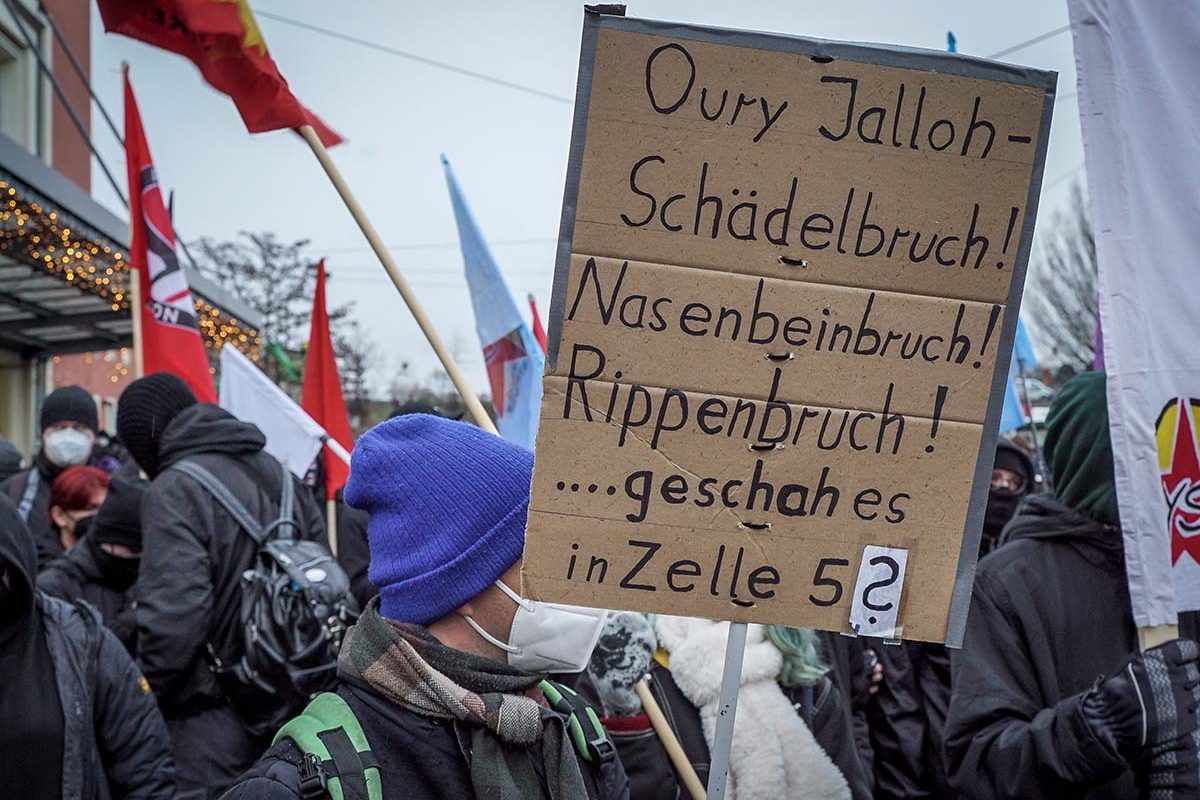 Oury Jalloh-
Schädelbruch!
Nasenbeinbruch!
Rippenbruch!
....geschah es
in Zelle 5?